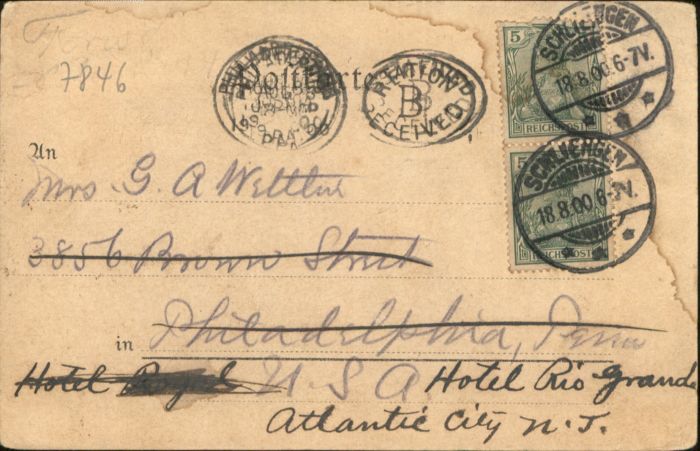 7846
Postkarte
PHILADELPHIA
RECEIVED
STATION
B
RECEIVED
5
REICHSPOST
SCHLIENGEN
18.8.00.6-7V.
5
REICHSPOST
SCHLIENGEN
18.8.00.6-7V.
An
Mrs. G. A
3856 Brown Street
in Philadelphia, Penn
Hotel Royal U.S.A. Hotel Rio Grande
Atlantic City N.J.